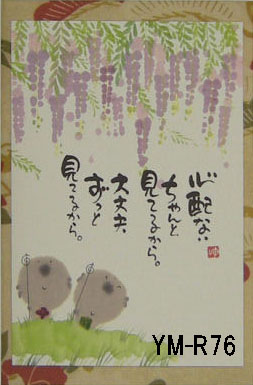 心配ない
ちゃんと
見てるから。
大丈夫
ずっと
見てるから。
YM-R76